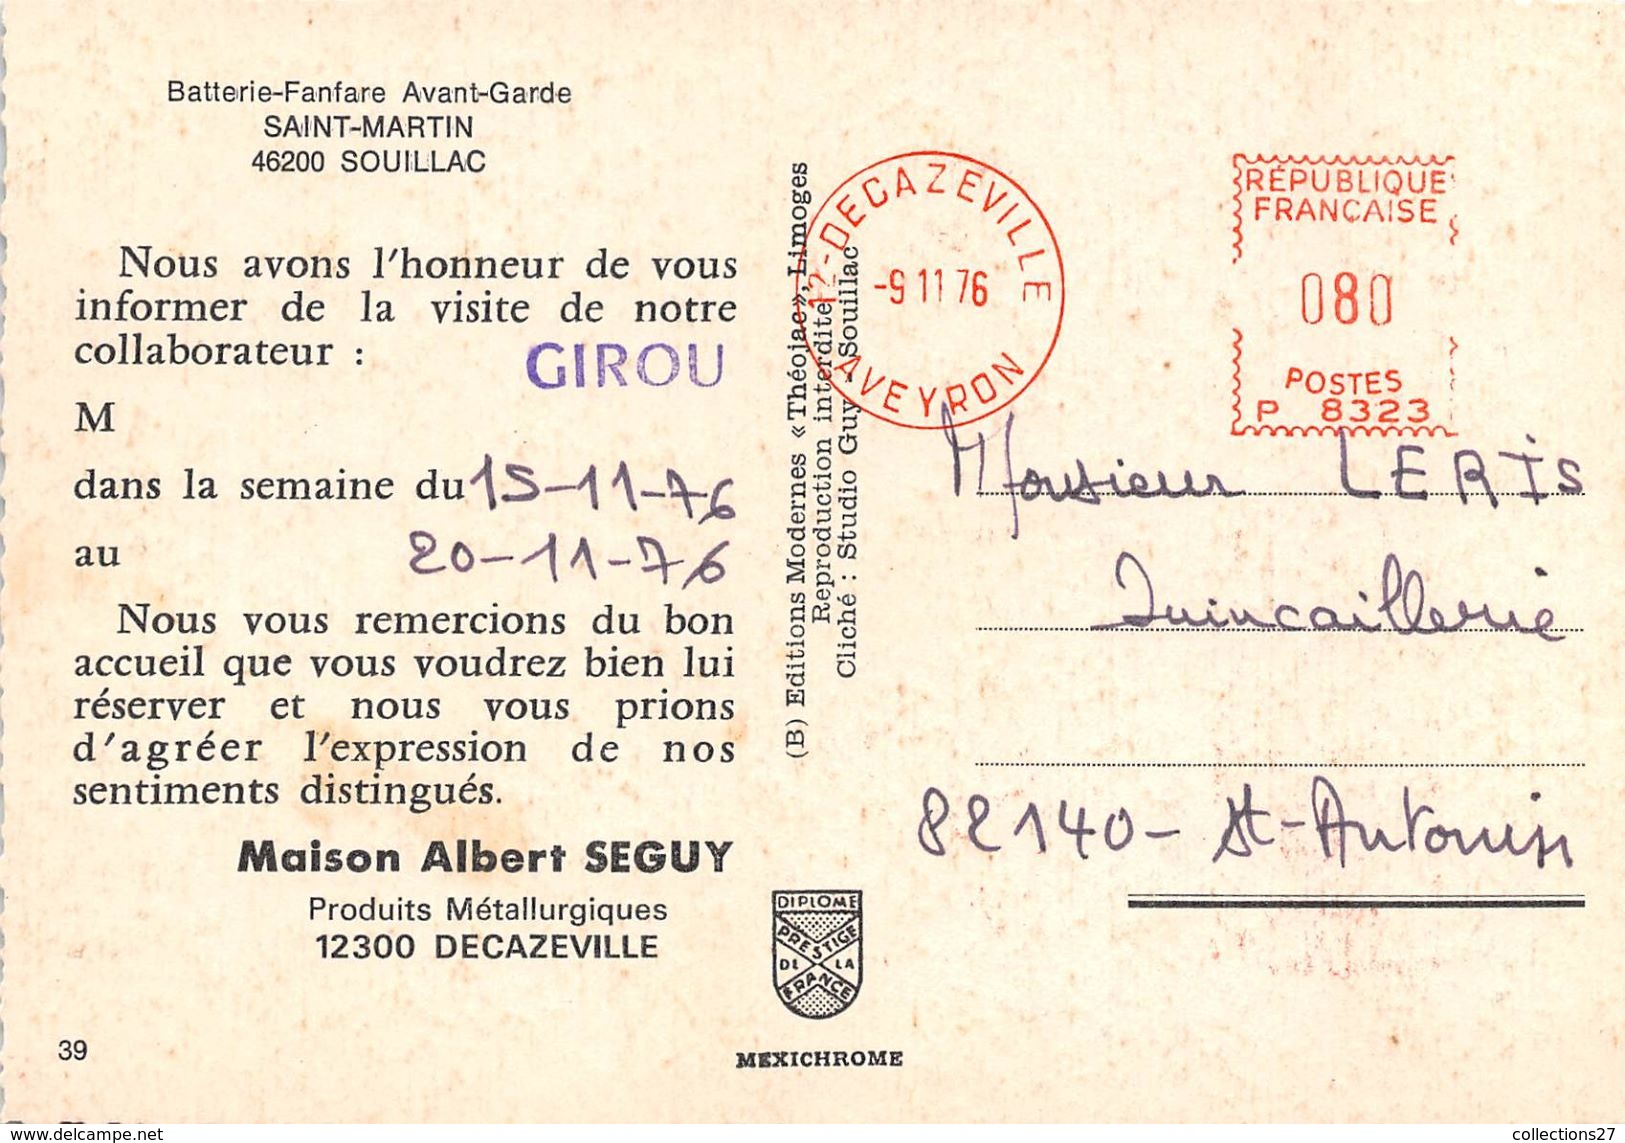 Batterie-Fanfare Avant-Garde
SAINT-MARTIN
46200 SOUILLAC
Nous avons l'honneur de vous
informer de la visite de notre
collaborateur :
GIROU
M
dans la semaine du 15-11-76
au 20-11-76
Nous vous remercions du bon
accueil que vous voudrez bien lui
réserver et nous vous prions
d'agréer l'expression de nos
sentiments distingués.
Maison Albert SEGUY
Produits Métallurgiques
12300 DECAZEVILLE
39
(B) Editions Modernes « Théojac », Limoges
Reproduction interdite
Cliché : Studio Guy - Souillac
DIPLOME
PRESTIGE
DE LA
FRANCE
MEXICHROME
12-DECAZEVILLE
-9 11 76
AVEYRON
RÉPUBLIQUE
FRANÇAISE
080
POSTES
P 8323
Monsieur LERIS
Quincaillerie
82140 - St-Antonin
delcampe.net
collections27